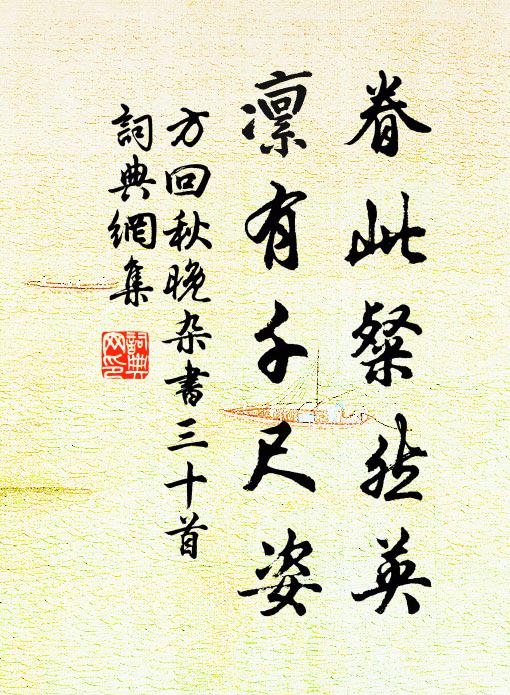 眷此粲然英
凛有千尺姿
方回秋晚杂書三十首
詞典網集
詞典网印